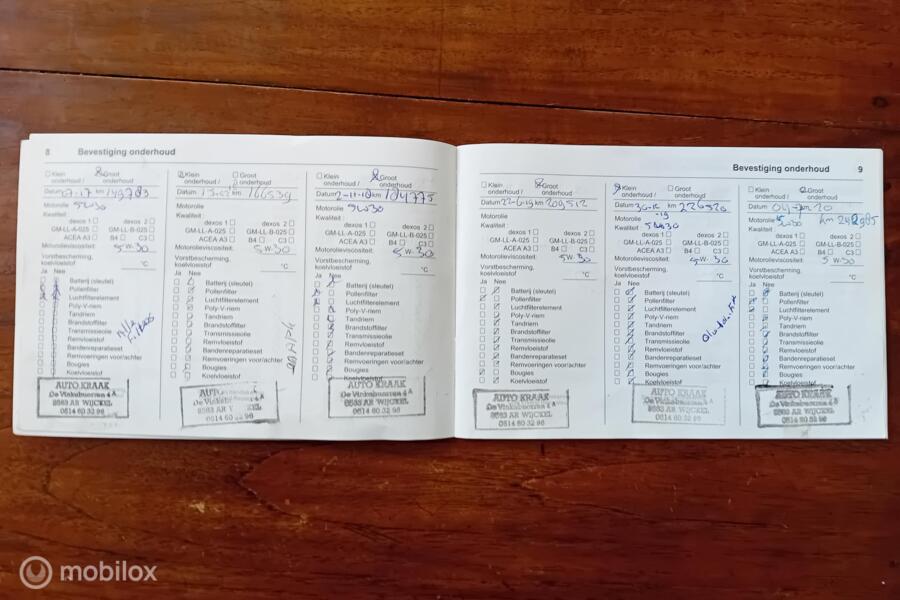 8 Bevestiging onderhoud
Klein onderhoud / Groot onderhoud
Datum km
Motorolie 5W30
Kwaliteit
dexos 1 dexos 2
GM-LL-A-025 GM-LL-B-025
ACEA A3 B4 C3
Motorolieviscositeit: 5W-30
Vorstbescherming,
koelvloeistof °C
Ja Nee
Batterij (sleutel)
Pollenfilter
Luchtfilterelement
Poly-V-riem
Tandriem
Brandstoffilter
Transmissieolie
Remvloeistof
Bandenreparatieset
Remvoeringen voor/achter
Bougies
Koelvloeistof
AUTO KRAAK
De Vinkebuorren 4A
8563 AR WIJCKEL
0514 60 32 96
Klein onderhoud / Groot onderhoud
Datum km 166539
Motorolie
Kwaliteit:
dexos 1 dexos 2
GM-LL-A-025 GM-LL-B-025
ACEA A3 B4 C3
Motorolieviscositeit: 5W-30
Vorstbescherming,
koelvloeistof °C
Ja Nee
Batterij (sleutel)
Pollenfilter
Luchtfilterelement
Poly-V-riem
Tandriem
Brandstoffilter
Transmissieolie
Remvloeistof
Bandenreparatieset
Remvoeringen voor/achter
Bougies
Koelvloeistof
AUTO KRAAK
0514 60 32 96
Klein onderhoud / Groot onderhoud
Datum km
Motorolie 5W30
Kwaliteit:
dexos 1 dexos 2
GM-LL-A-025 GM-LL-B-025
ACEA A3 B4 C3
Motorolieviscositeit: 5W-30
Vorstbescherming,
koelvloeistof °C
Ja Nee
Batterij (sleutel)
Pollenfilter
Luchtfilterelement
Poly-V-riem
Tandriem
Brandstoffilter
Transmissieolie
Remvloeistof
Bandenreparatieset
Remvoeringen voor/achter
Bougies
Koelvloeistof
AUTO KRAAK
De Vinkebuorren 4A
8563 AR WIJCKEL
0514 60 32 96
Bevestiging onderhoud 9
Klein onderhoud / Groot onderhoud
Datum 22-6-19 km 209512
Motorolie
Kwaliteit
dexos 1 dexos 2
GM-LL-A-025 GM-LL-B-025
ACEA A3 B4 C3
Motorolieviscositeit: 5W-30
Vorstbescherming,
koelvloeistof °C
Ja Nee
Batterij (sleutel)
Pollenfilter
Luchtfilterelement
Poly-V-riem
Tandriem
Brandstoffilter
Transmissieolie
Remvloeistof
Bandenreparatieset
Remvoeringen voor/achter
Bougies
Koelvloeistof
AUTO KRAAK
De Vinkebuorren 4A
8563 AR WIJCKEL
0514 60 32 96
Klein onderhoud / Groot onderhoud
Datum 30-12 km 226520
-19
Motorolie 5W30
Kwaliteit:
dexos 1 dexos 2
GM-LL-A-025 GM-LL-B-025
ACEA A3 B4 C3
Motorolieviscositeit: 5W-30
Vorstbescherming,
koelvloeistof °C
Ja Nee
Batterij (sleutel)
Pollenfilter
Luchtfilterelement
Poly-V-riem
Tandriem
Brandstoffilter
Transmissieolie
Remvloeistof
Bandenreparatieset
Remvoeringen voor/achter
Bougies
Koelvloeistof
AUTO KRAAK
De Vinkebuorren 4A
8563 AR WIJCKEL
0514 60 32 96
Klein onderhoud / Groot onderhoud
Datum
Motorolie 5W-30 km
Kwaliteit:
dexos 1 dexos 2
GM-LL-A-025 GM-LL-B-025
ACEA A3 B4 C3
Motorolieviscositeit: 5W-30
Vorstbescherming,
koelvloeistof °C
Ja Nee
Batterij (sleutel)
Pollenfilter
Luchtfilterelement
Poly-V-riem
Tandriem
Brandstoffilter
Transmissieolie
Remvloeistof
Bandenreparatieset
Remvoeringen voor/achter
Bougies
Koelvloeistof
AUTO KRAAK
De Vinkebuorren 4A
8563 AR WIJCKEL
0514 60 32 96
mobilox